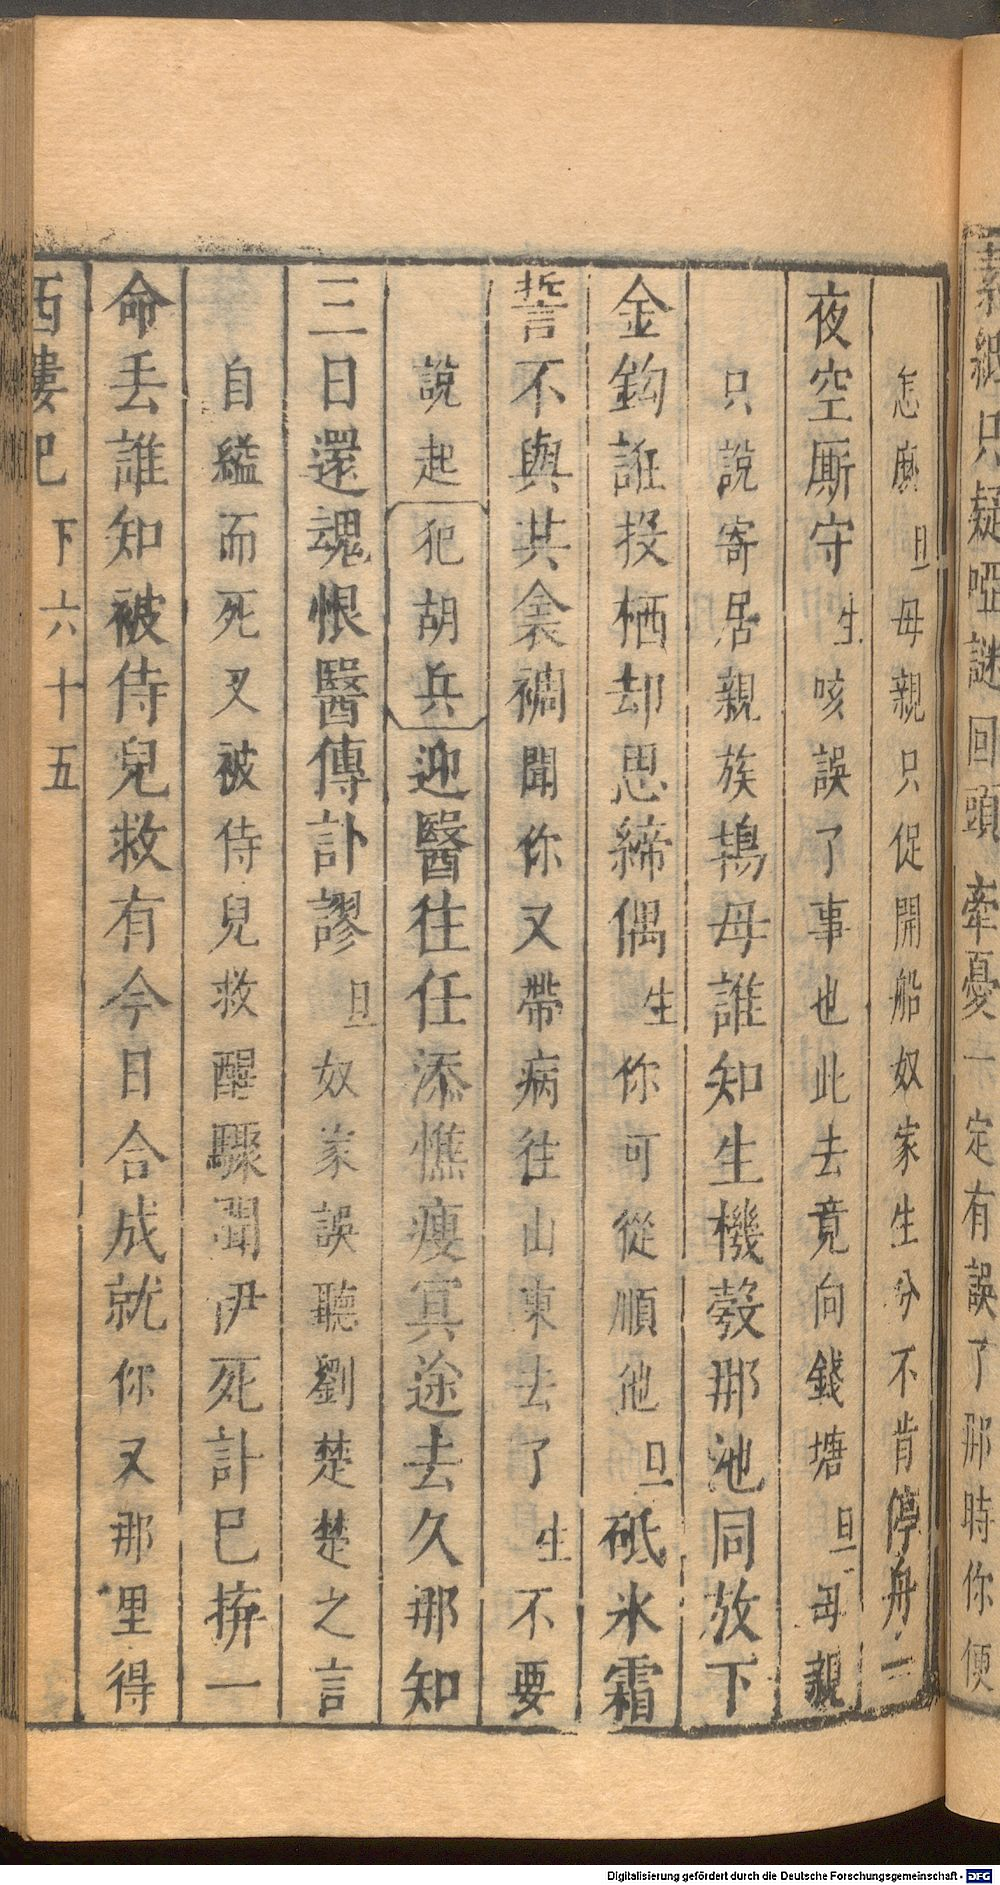 素紙只疑啞謎回頭牽憂一定有誤了那時你便
怎麽旦母親只促開船奴家生分不肯停舟一
夜空厮守生咳誤了事也此去竟向錢塘旦母親
只說寄居親族鴇母誰知生機彀那池同放下
金鈎誑投栖却思締偶生你可從順他旦砥氷霜
誓不與其衾裯聞你又帶病往山東去了生不要
說起犯胡兵迎醫往任添憔瘦冥途去久那知
三日還魂恨醫傳訃謬旦奴家誤聽劉楚楚之言
自縊而死又被侍兒救醒驟聞伊死訃已拚一
命丢誰知被侍兒救有今日合成就你又那里得
西樓記 下 六十五
Digitalisierung gefördert durch die Deutsche Forschungsgemeinschaft - DFG